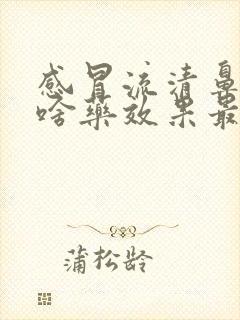 感冒流清鼻
啥药效果最
蒲松龄